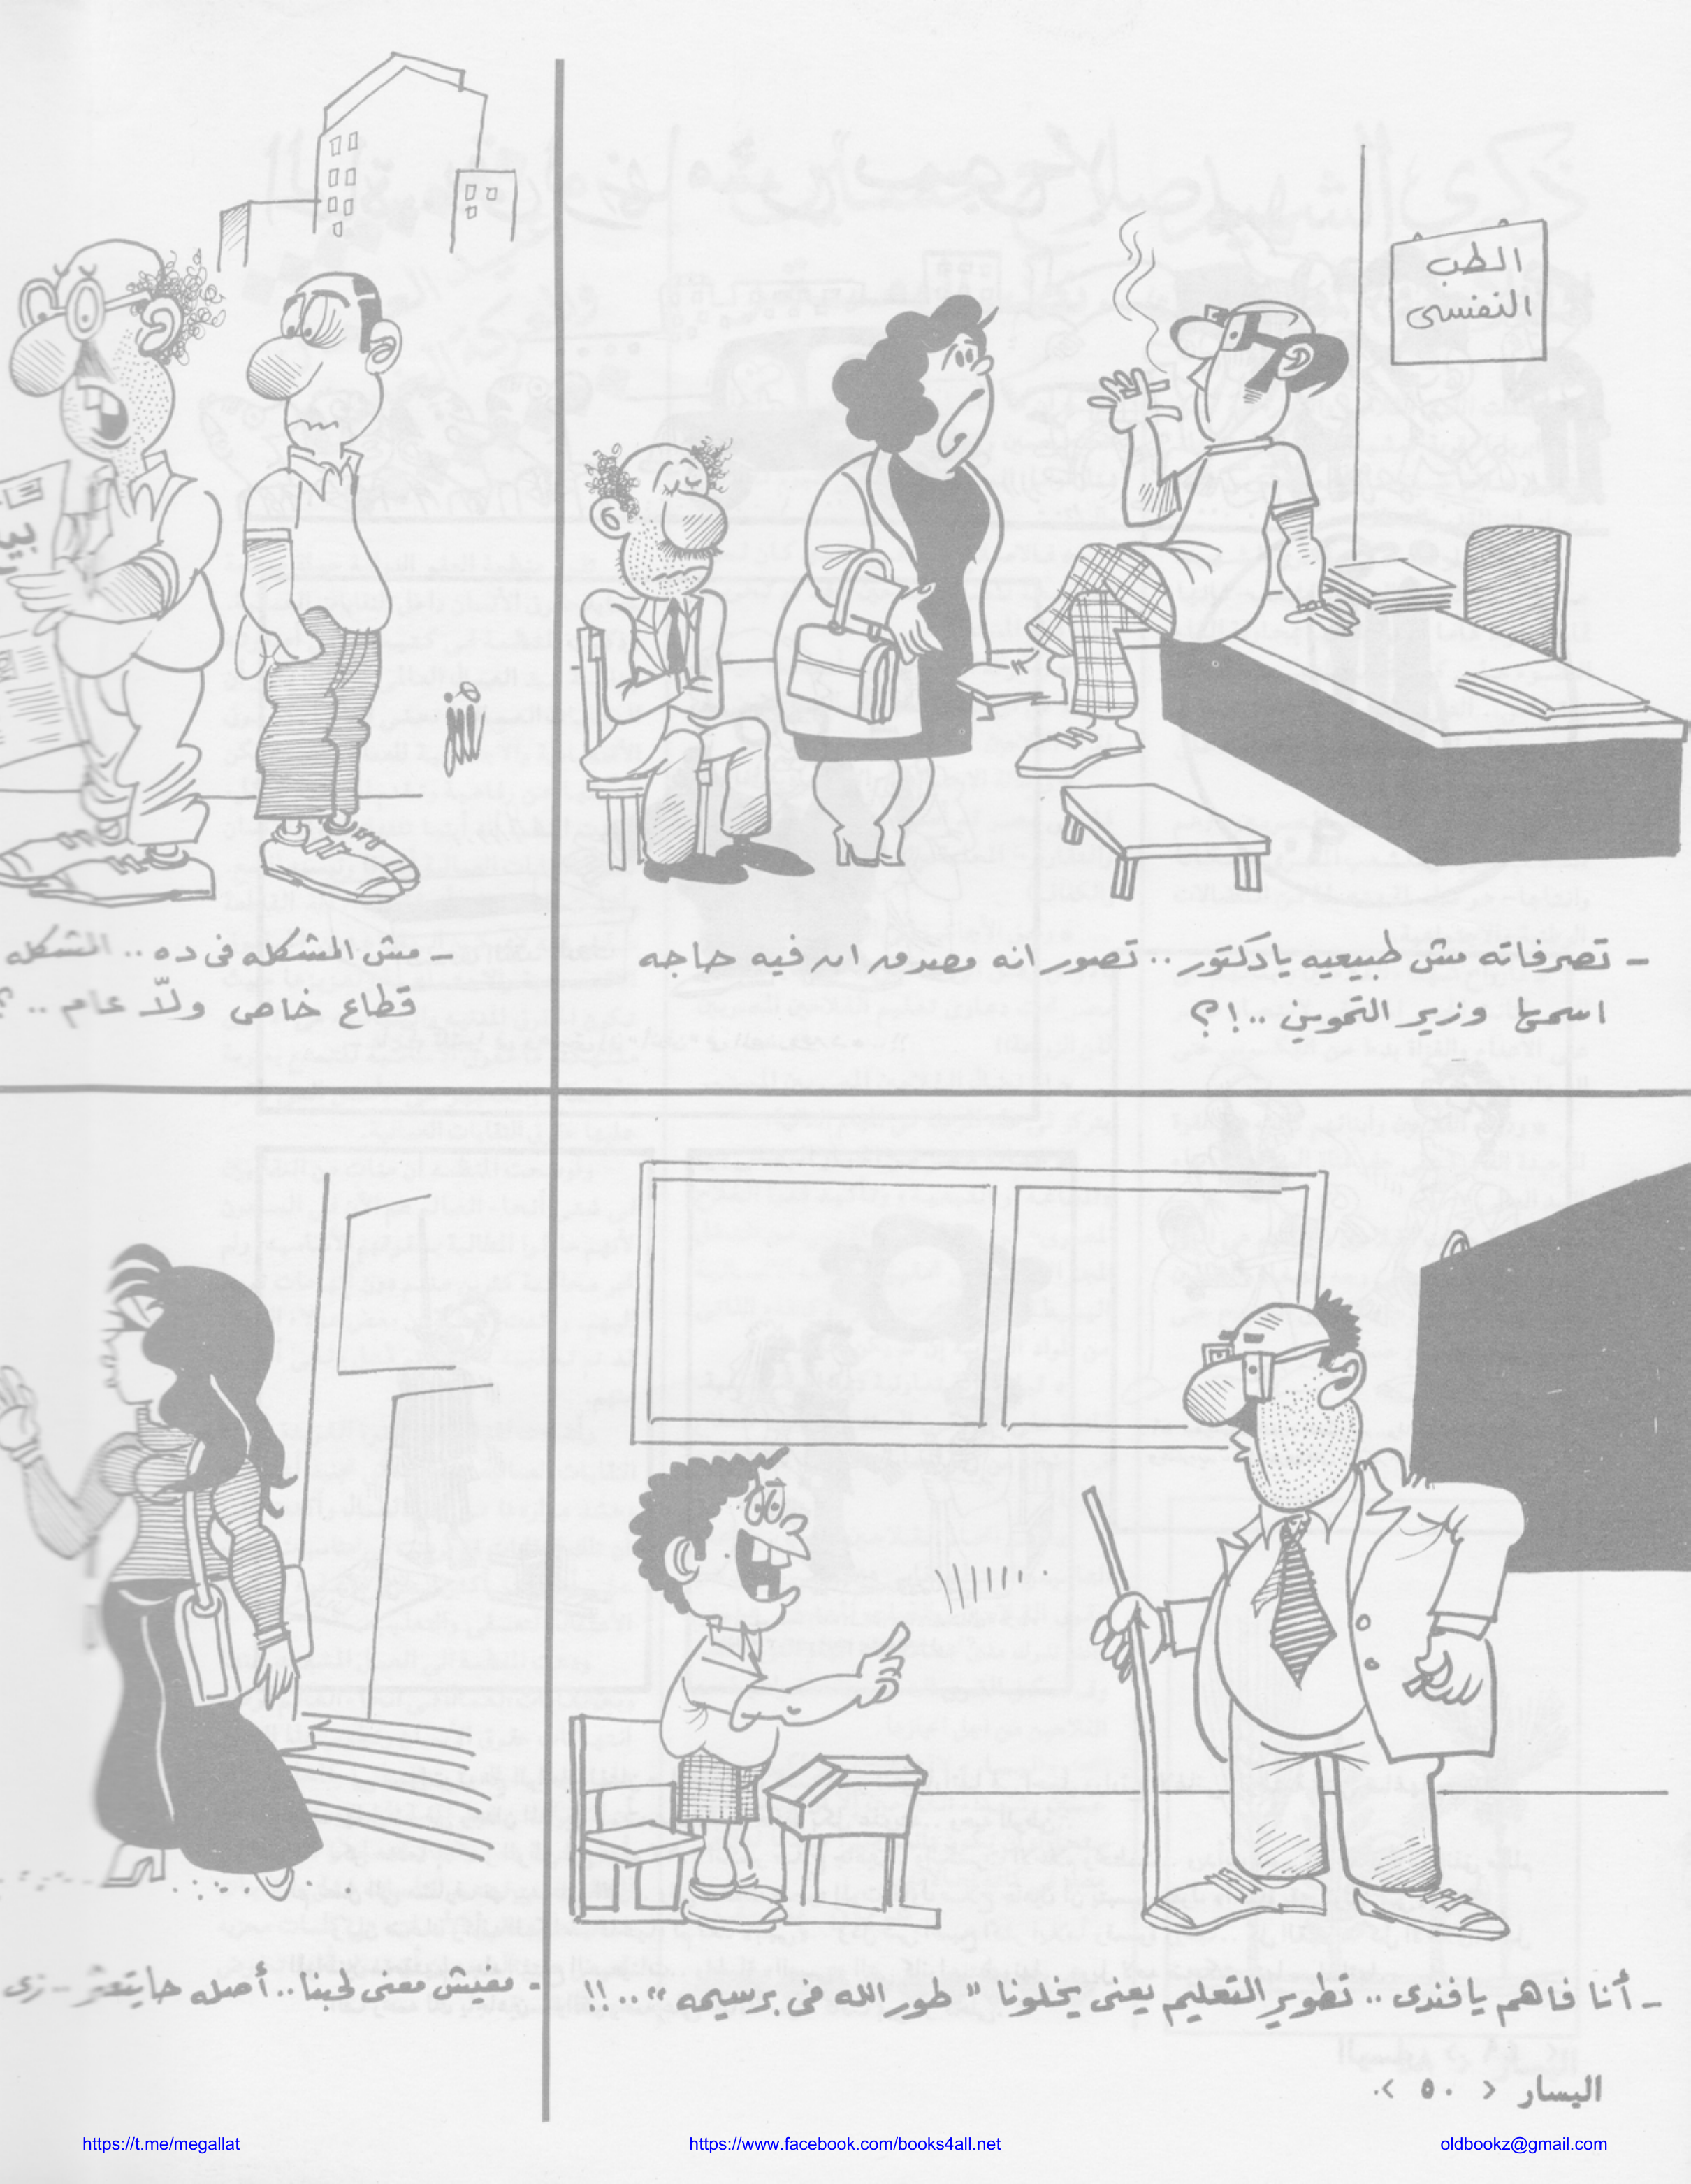 الطب
النفسى
- تصرفاته مش طبيعيه يا دكتور .. تصور انه مصدق ان فيه حاجه
اسمها وزير التموين ..!؟
- مش المشكله فى ده .. المشكله
قطاع خاص ولّا عام .. ؟
- أنا فاهم يا فندى .. تطوير التعليم يعنى يخلونا " طور الله فى برسيمه " ..!!
- مفيش معنى لحبنا .. أصله
- زى
اليسار < ٥٠ >
https://t.me/megallat
https://www.facebook.com/books4all.net
oldbookz@gmail.com